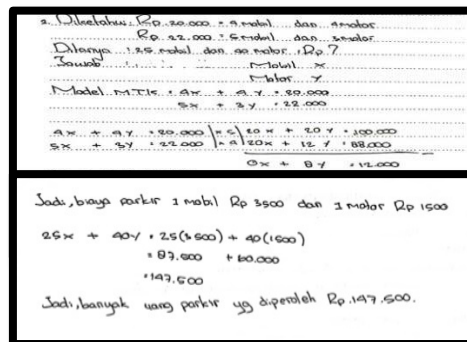 2. Diketahui: Rp 20.000 = 4 mobil dan 4 motor
Rp 22.000 = 5 mobil dan 3 motor
Ditanya : 25 mobil dan 40 motor : Rp ?
Jawab : Mobil X
Motor Y
Model MTK = 4x + 4y = 20.000
5x + 3y = 22.000
4x + 4y = 20.000 | x 5 | 20x + 20y = 100.000
5x + 3y = 22.000 | x 4 | 20x + 12y = 88.000
0x + 8y = 12.000
Jadi, biaya parkir 1 mobil Rp 3500 dan 1 motor Rp 1500
25x + 40y = 25(3500) + 40(1500)
= 87.500 + 60.000
= 147.500
Jadi, banyak uang parkir yg diperoleh Rp. 147.500.